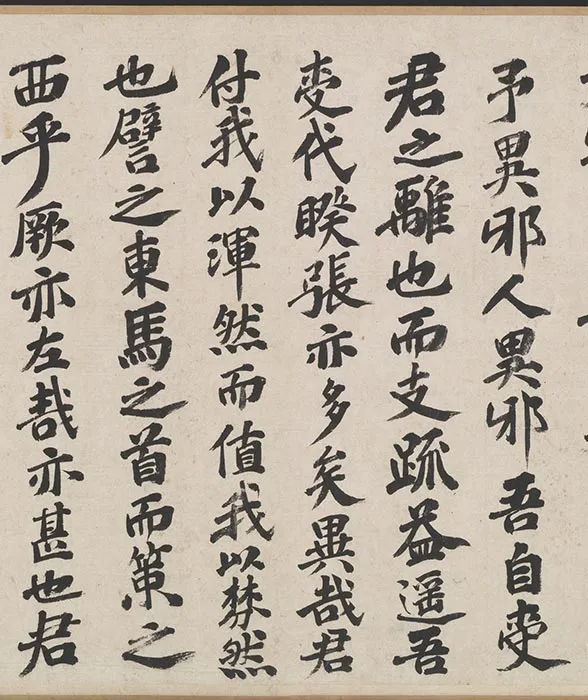 予異邪人異邪吾自更
君之離也而支疏益遥吾
更代暌張亦多矣異哉君
付我以渾然而值我以棼然
也譬之東馬之首而策之
西乎厥亦左哉亦甚也君